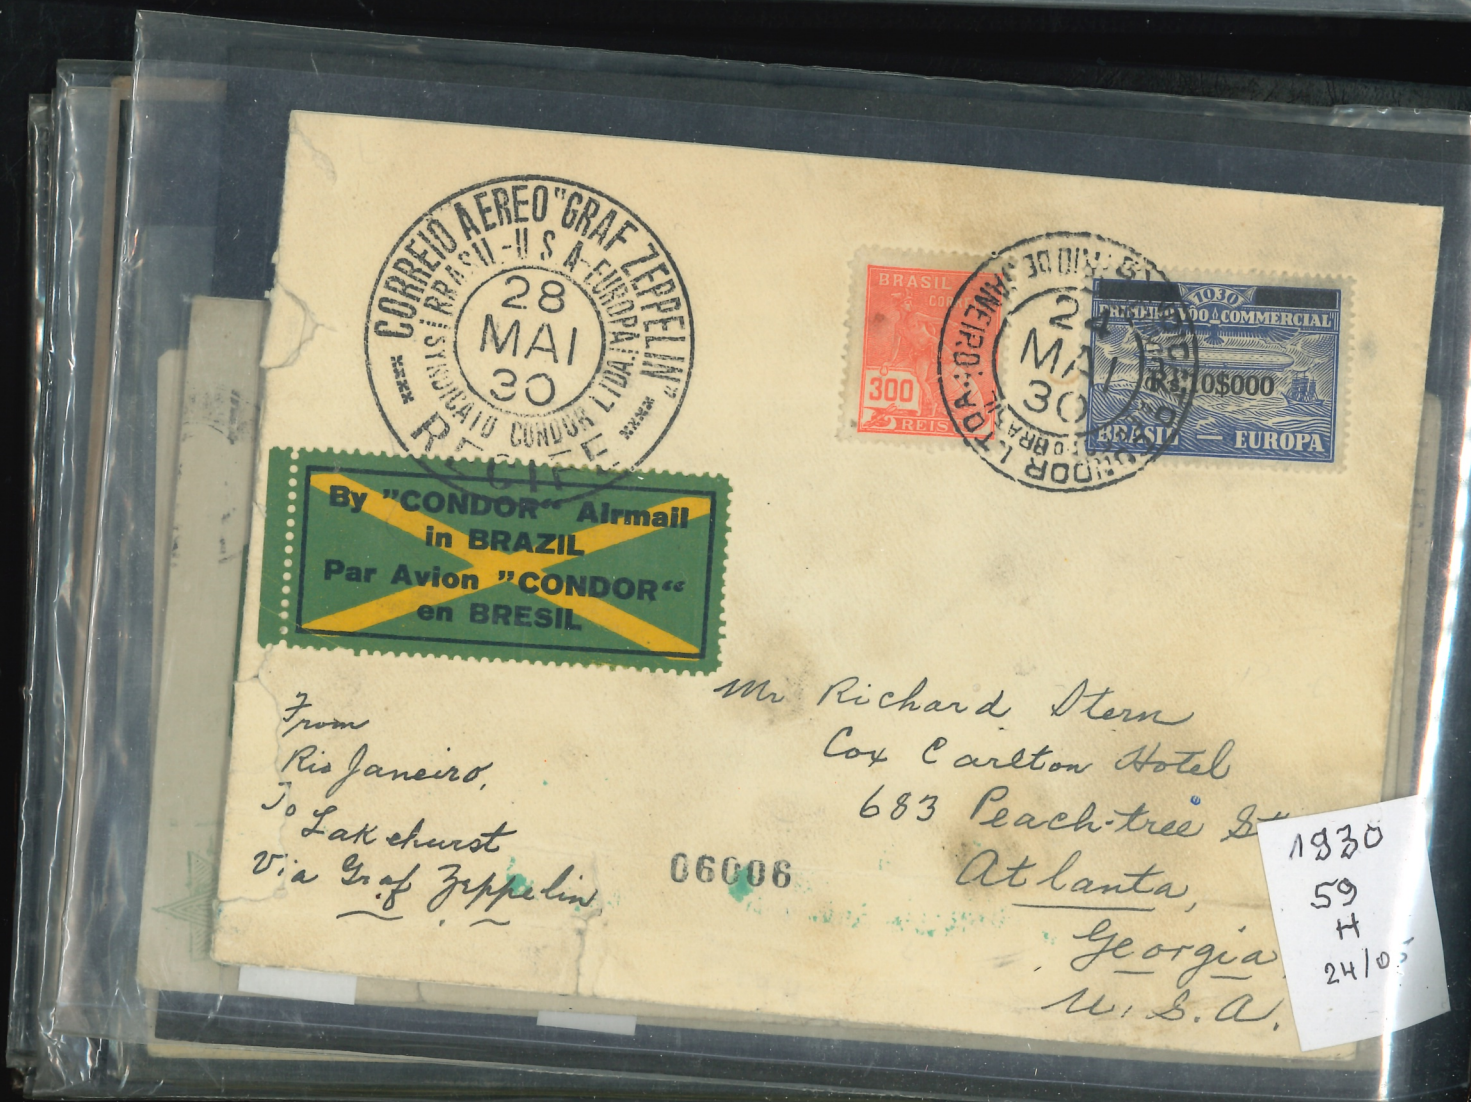 CORREIO AEREO "GRAF ZEPPELIN"
BRASIL-USA-EUROPA
SYNDICATO CONDOR LTDA.
28
MAI
30
RECIFE
BRASIL
300
REIS
RIO DE JANEIRO
24
MAI
30
CONDOR LTDA.
BRASIL
1930
COMMERCIAL
Rs.10$000
BRASIL — EUROPA
By "CONDOR" Airmail
in BRAZIL
Par Avion "CONDOR"
en BRESIL
From
Rio Janeiro,
To
Lakehurst
Via Graf Zeppelin
Mr Richard Stern
Cox Carlton Hotel
683 Peach-tree St
Atlanta,
Georgia
U.S.A.
06006
1930
59
H
24/05